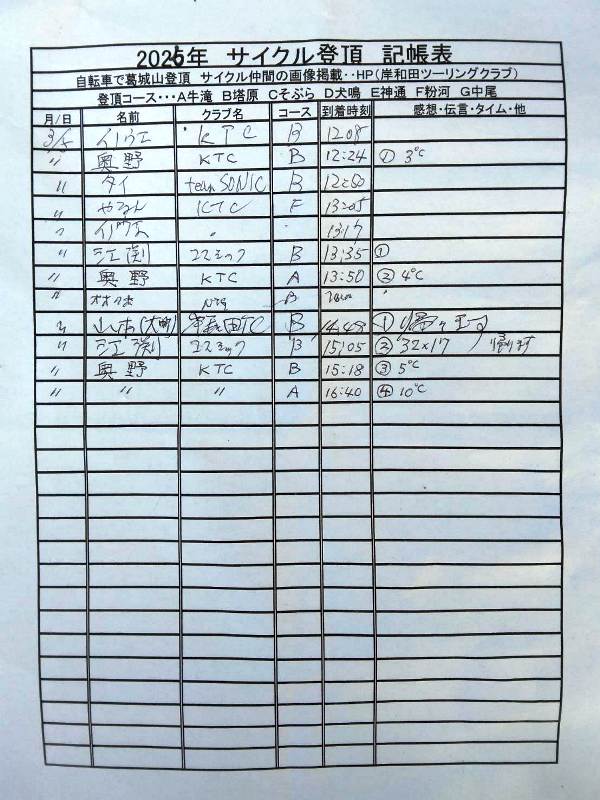 2025年 サイクル登頂 記帳表
自転車で葛城山登頂 サイクル仲間の画像掲載‥HP(岸和田ツーリングクラブ)
登頂コース・・・A牛滝 B塔原 Cそぶら D犬鳴 E神通 F粉河 G中尾
月/日 名前 クラブ名 コース 到着時刻 感想・伝言・タイム・他
イノウエ KTC B 12:08
〃 奥野 KTC B 12:24 ① 3℃
〃 タイ team SONIC B
〃 KTC F 13:05
〃 イノウエ 〃 13:17
〃 江渕 コスミック B 13:35 ①
〃 奥野 KTC A 13:50 ② 4℃
〃 B
〃 山本 B 14:48 ① 帰ります
〃 江渕 コスミック B 15:05 ② 32×17 帰ります
〃 奥野 KTC B 15:18 ③ 5℃
〃 〃 〃 A 16:40 ④ 10℃